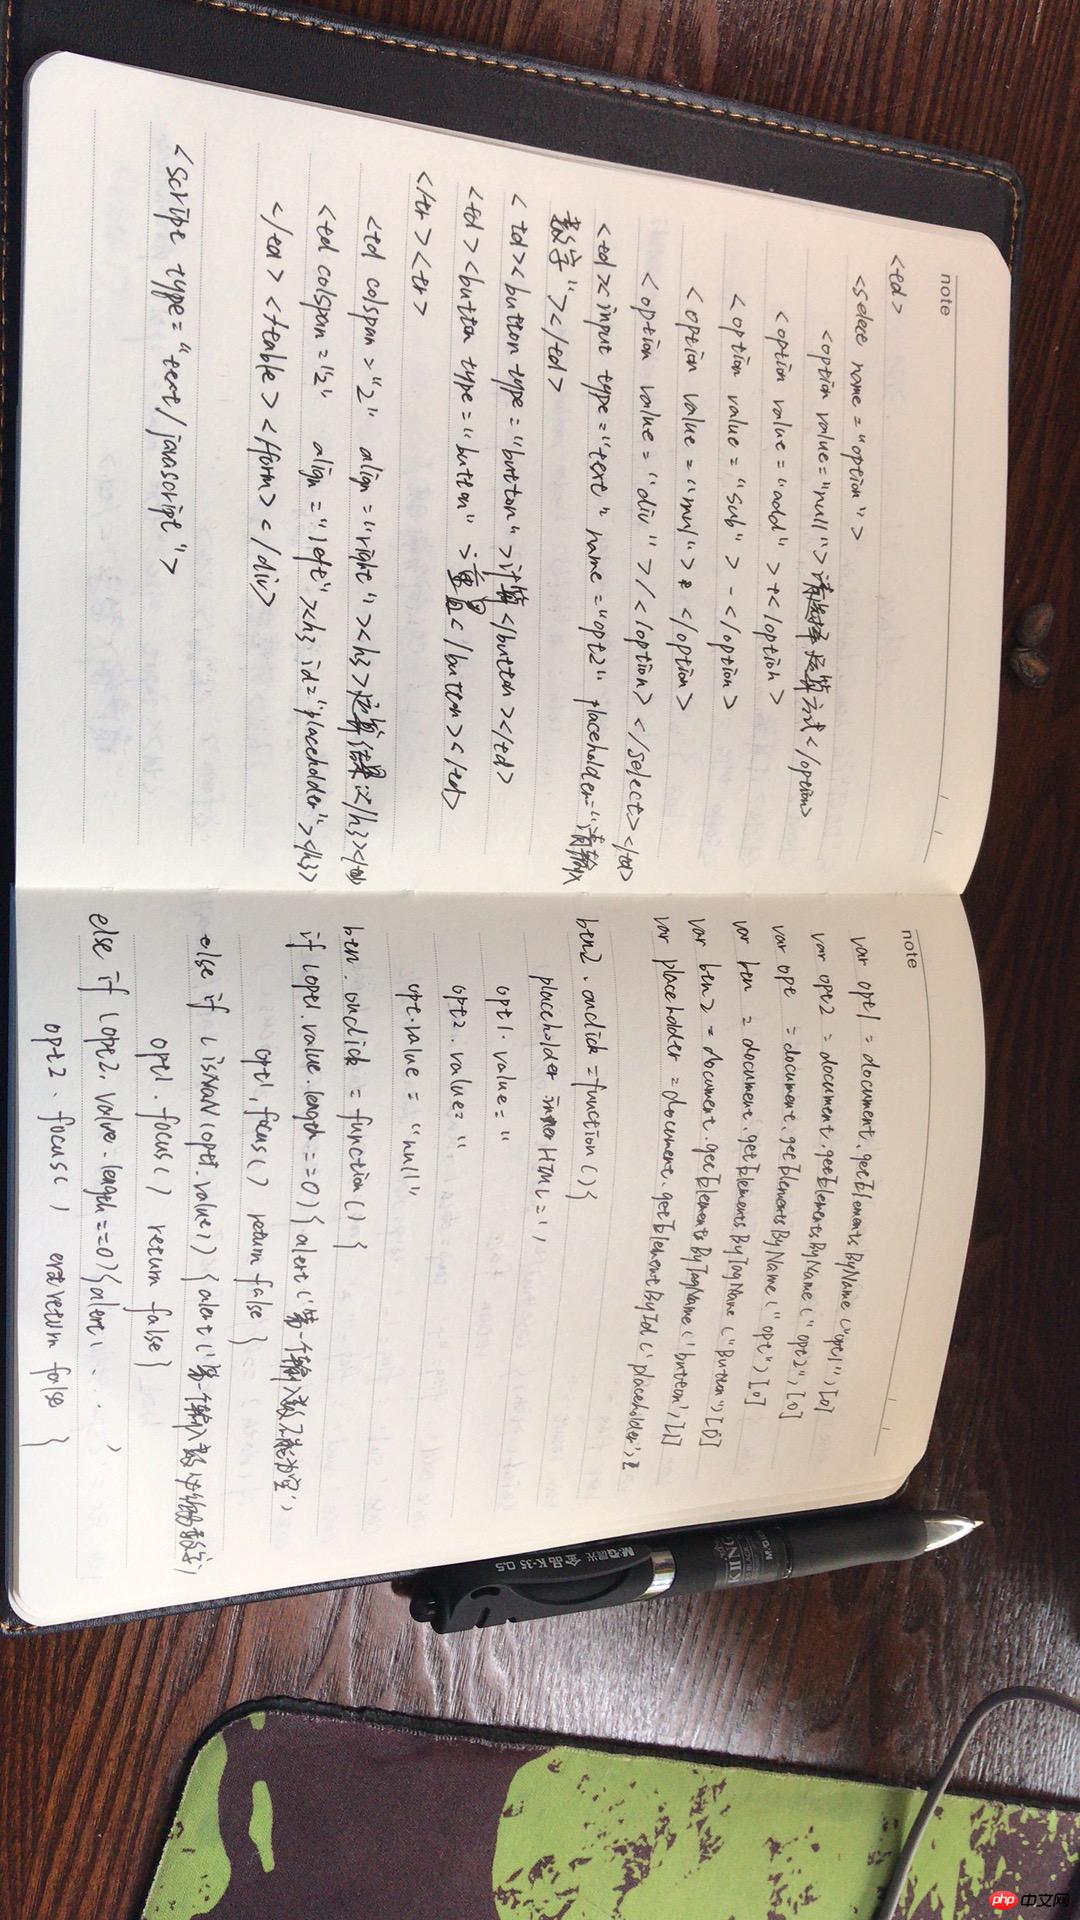 note
<td>
<select name="option">
<option value="null">请选择运算方式</option>
<option value="add">+</option>
<option value="sub">-</option>
<option value="mul">*</option>
<option value="div">/</option></select></td>
<td><input type="text" name="opt2" placeholder="请输入
数字"></td>
<td><button type="button">计算</button></td>
<td><button type="button">重置</button></td>
</tr><tr>
<td colspan="2" align="right"><h3>运算结果:</h3></td>
<td colspan="2" align="left"><h3 id="placeholder"></h3>
</td></table></form></div>
<script type="text/javascript">
note
var opt1 = document.getElementsByName("opt1")[0]
var opt2 = document.getElementsByName("opt2")[0]
var opt = document.getElementsByName("opt")[0]
var btn = document.getElementsByTagName("Button")[0]
var btn2 = document.getElementsByTagName('button')[1]
var placeholder = document.getElementById('placeholder')
btn2.onclick=function(){
placeholder innerHTML=''
opt1.value="
opt2.value="
opt.value="null"
btn.onclick=function(){
if(opt1.value.length==0){alert('第一个输入数不能为空')
opt1.focus() return false}
else if(isNaN(opt1.value)){alert('第一个输入数必须为数字')
opt1.focus() return false}
else if(opt2.value.length==0){alert(...)
opt2.focus() return false }
M&G晨光 金品 K-35 0.5
php中文网